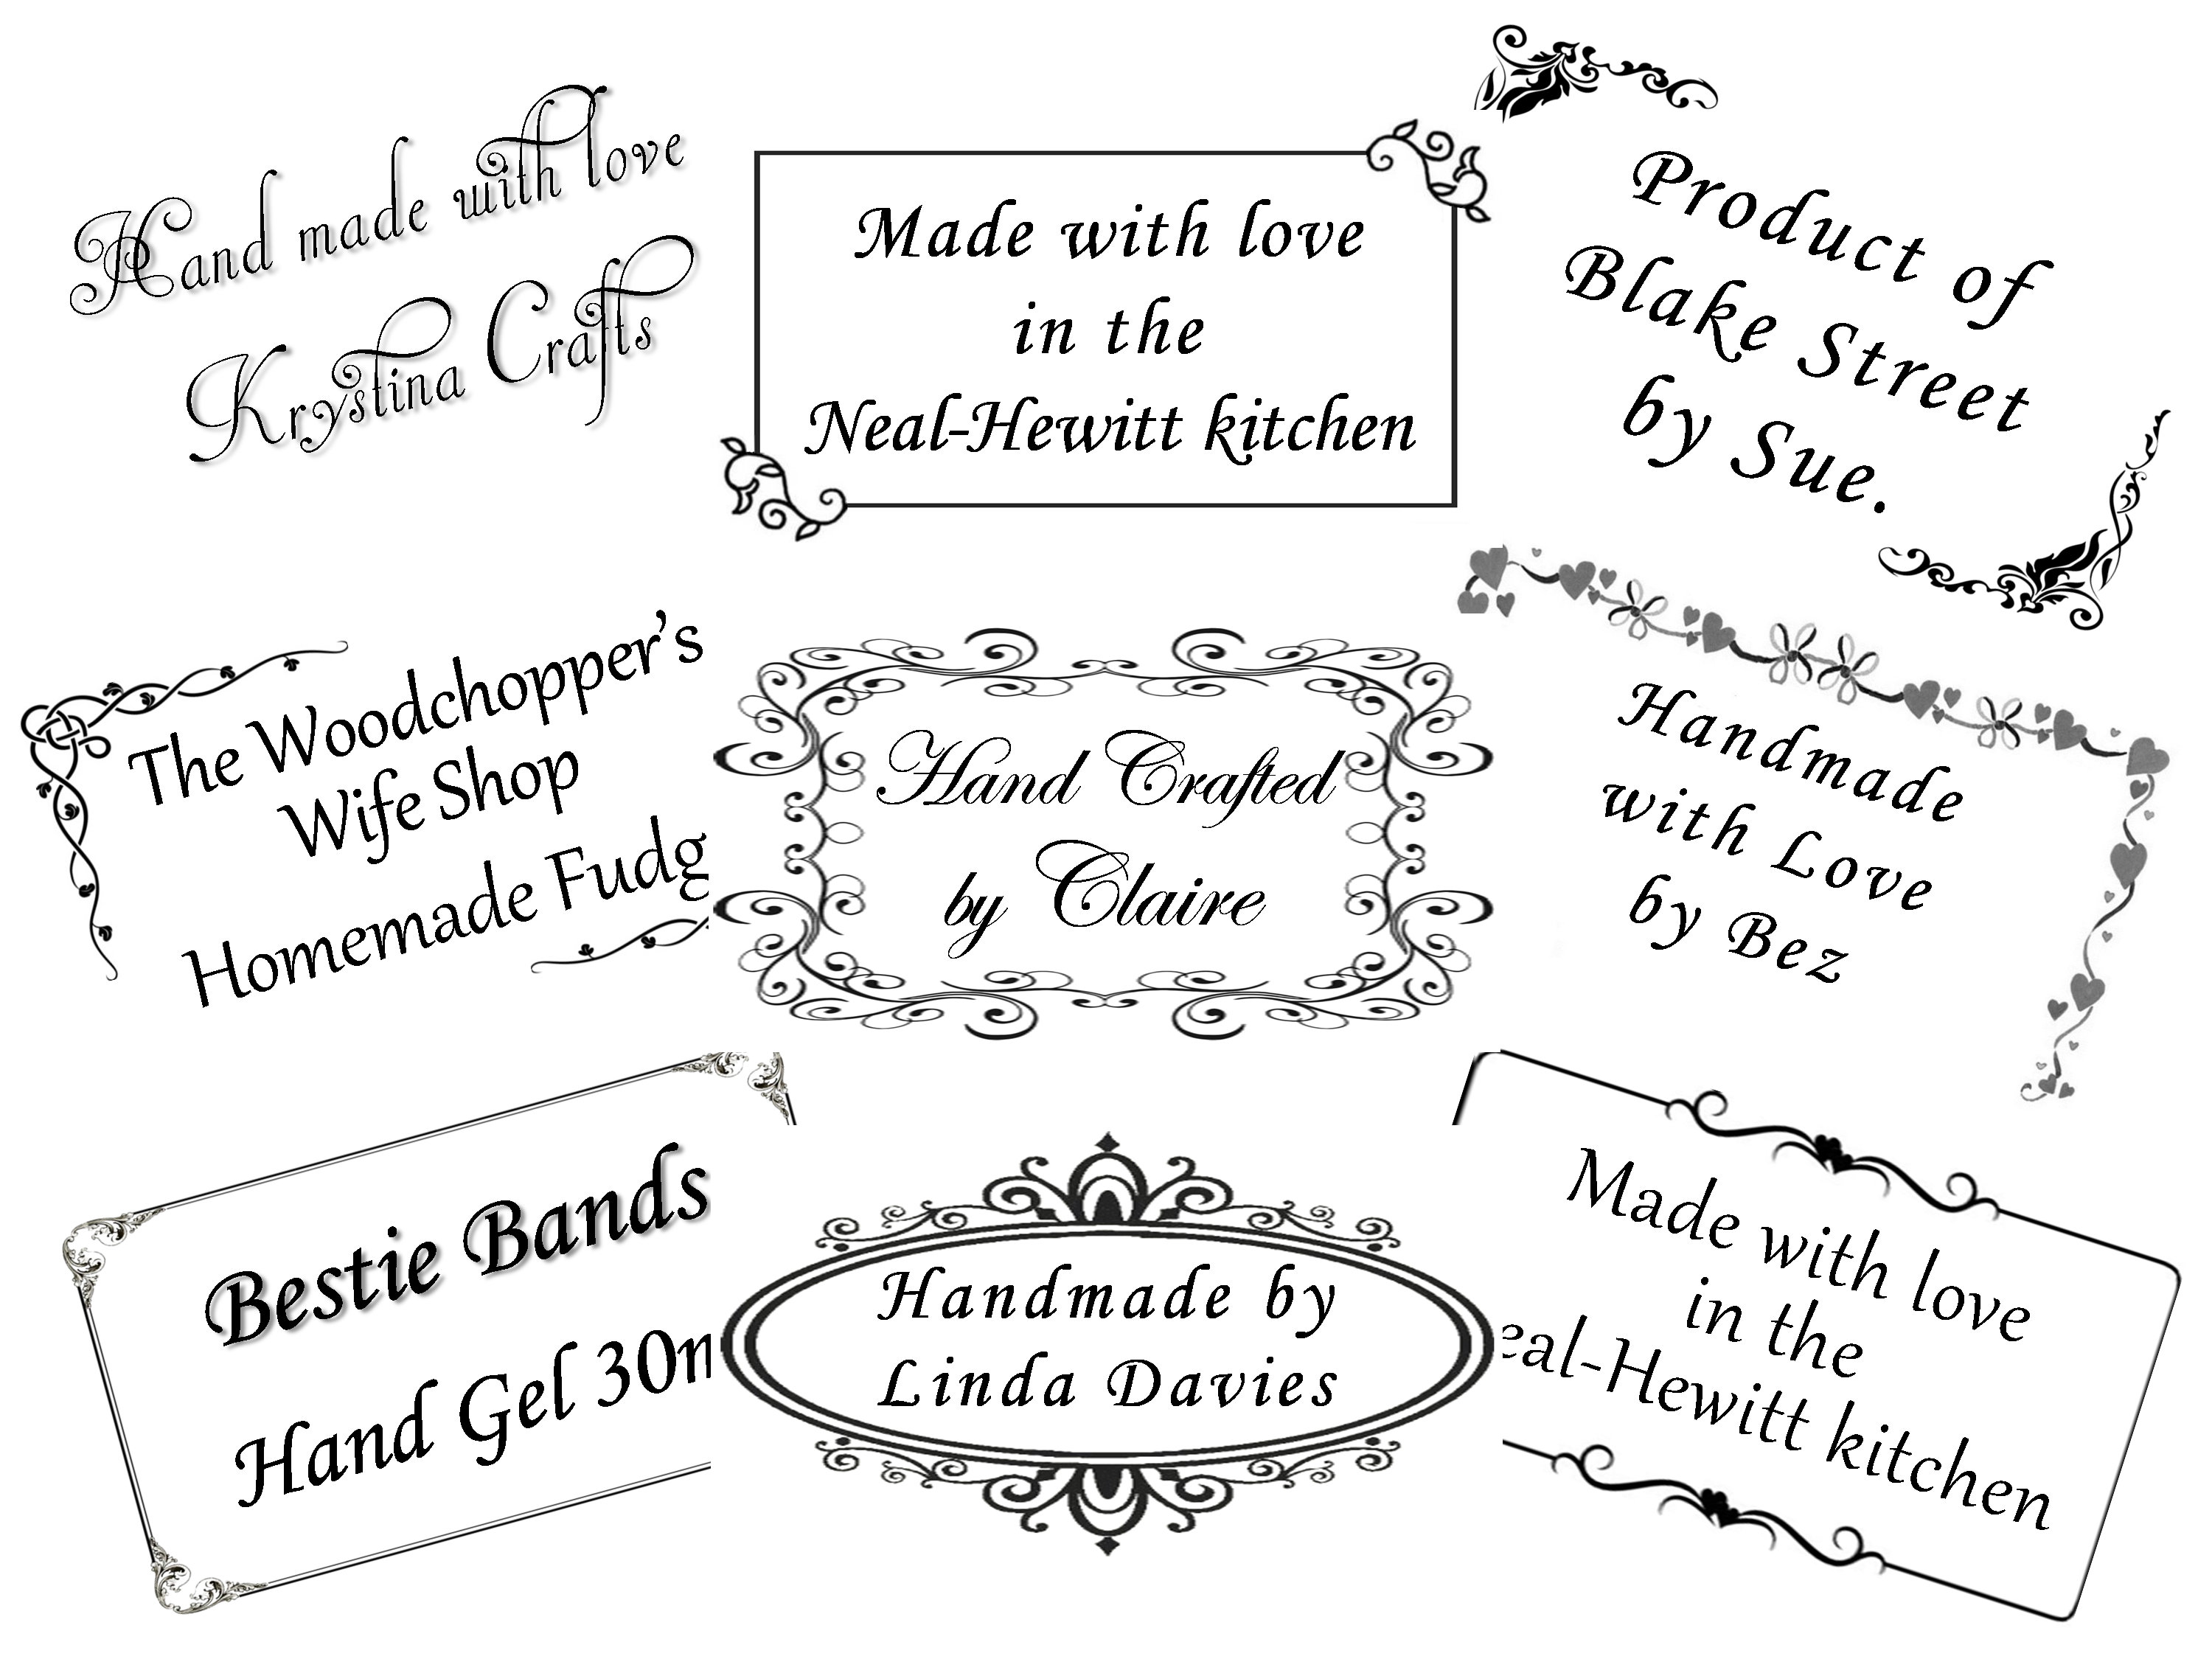 Hand made with love
Krystina Crafts
Made with love
in the
Neal-Hewitt kitchen
Product of
Blake Street
by Sue.
The Woodchopper's
Wife Shop
Homemade Fudg
Hand Crafted
by Claire
Handmade
with Love
by Bez
Bestie Bands
Hand Gel 30m
Handmade by
Linda Davies
Made with love
in the
eal-Hewitt kitchen